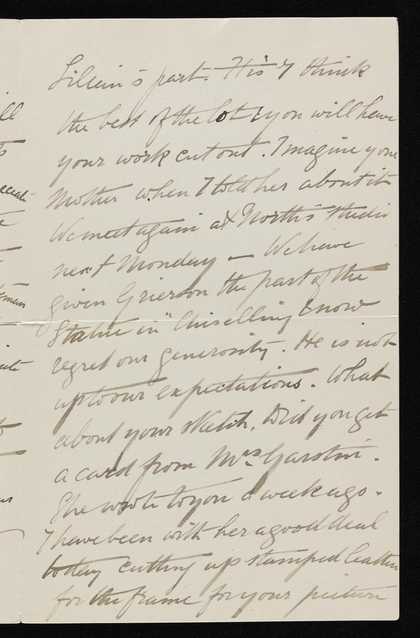 Lilian's part. His I think
the best of the lot & you will have
your work cut out. Imagine your
Mother when I told her about it
We meet again at North's Studio
next Monday — We have
given Grierson the part of the
Statue in "Chiselling & now
regret our generosity. He is not
up to our expectations. What
about your sketch. Did you get
a card from Mrs Garstin.
She wrote to you a week ago.
I have been with her a good deal
today cutting up stamped leather
for the frame for your picture